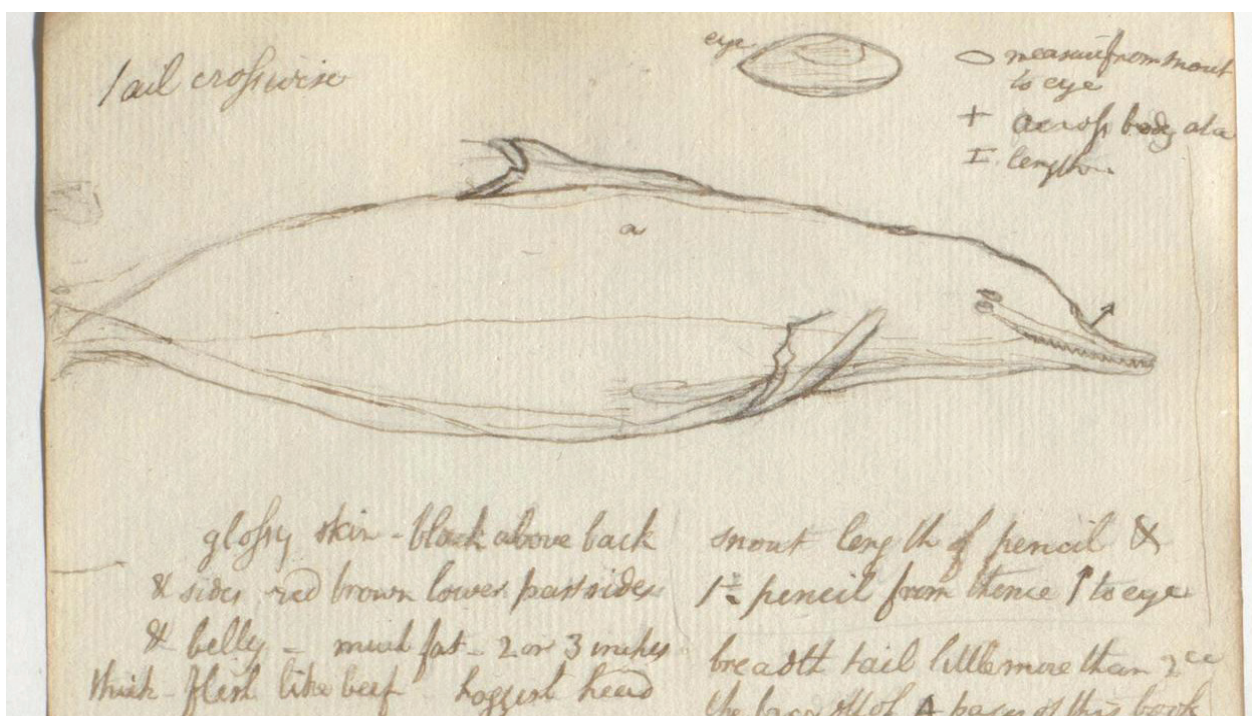 tail crosswise
eye
measure from snout
to eye
+ across body at a
I length
a
glossy skin - black above back
& sides red brown lower part sides
& belly - much fat - 2 or 3 inches
thick - flesh like beef head
snout length of pencil &
1½ pencil from thence ↑ to eye
breadth tail little more than
the of 4 pages of this book